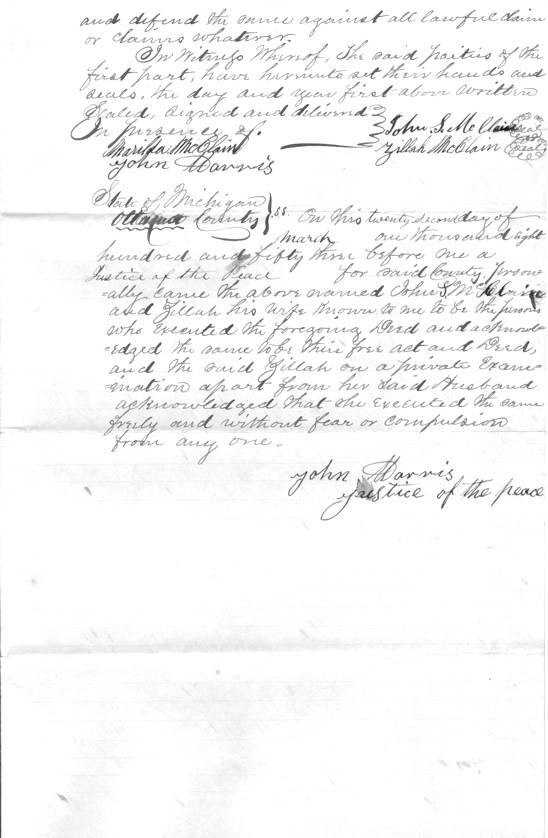 and defend the same against all lawful claim
or claims whatever.
In Witness Whereof, The said parties of the
first part, have hereunto set their hands and
seals, the day and year first above written
Sealed, Signed and delivered
In presence of.
John S. McClain Seal
Marilda McClain
Zillah McClain Seal
John Darris
State of Michigan
Ottawa County } ss. On this twenty second day of
March on thousand eight
hundred and fifty three before me a
Justice of the Peace for said County, person
=ally came the above named John S. McClain
and Zillah his wife known to me to be the persons
who executed the foregoing Deed and acknowl
=edged the same to be their free act and Deed,
and the said Zillah on a private Exami
=nation apart from her said Husband
acknowledged that she executed the same
freely and without fear or compulsion
from any one.
John Darris
Justice of the peace